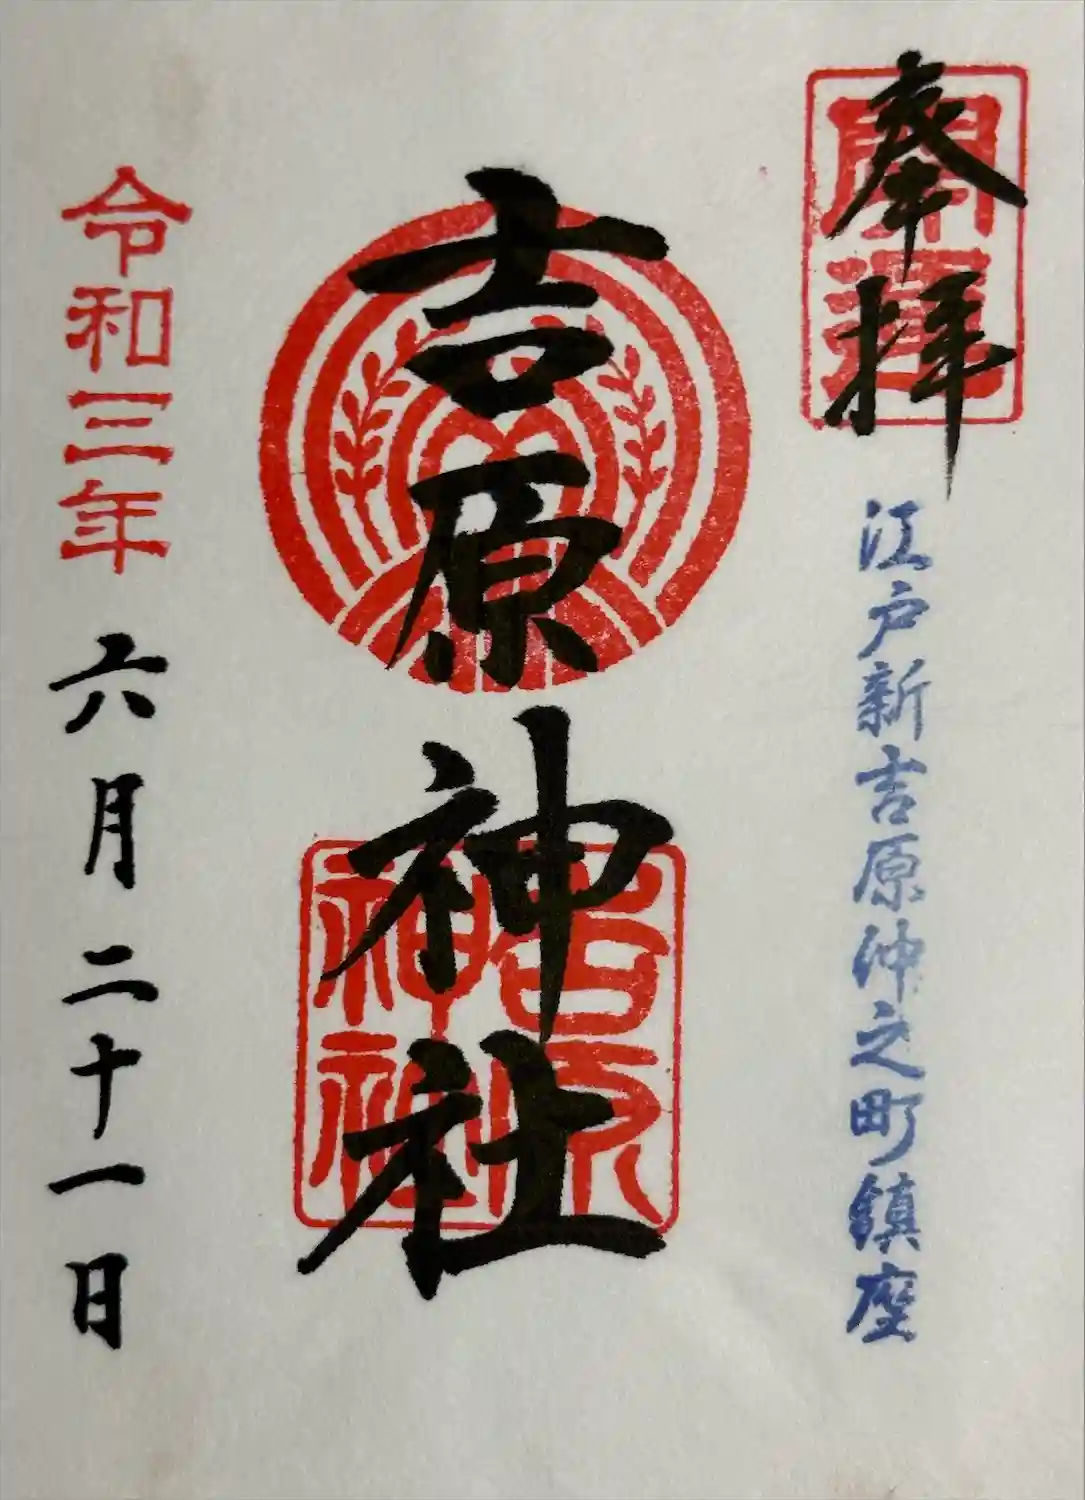 奉拝
開運
江戸新吉原仲之町鎮座
吉原神社
吉原神社
令和三年六月二十一日